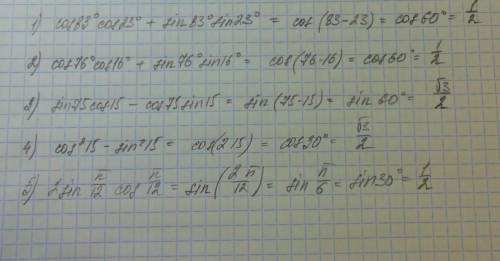 1) cos83°cos23° + sin83°sin23° = cos(83-23) = cos60° = 1/2
2) cos76°cos16° + sin76°sin16° = cos(76-16) = cos60° = 1/2
3) sin75cos15 - cos75sin15 = sin(75-15) = sin60° = √3/2
4) cos²15 - sin²15 = cos(2·15) = cos30° = √3/2
5) 2sin π/12 cos π/12 = sin(2π/12) = sin π/6 = sin30° = 1/2